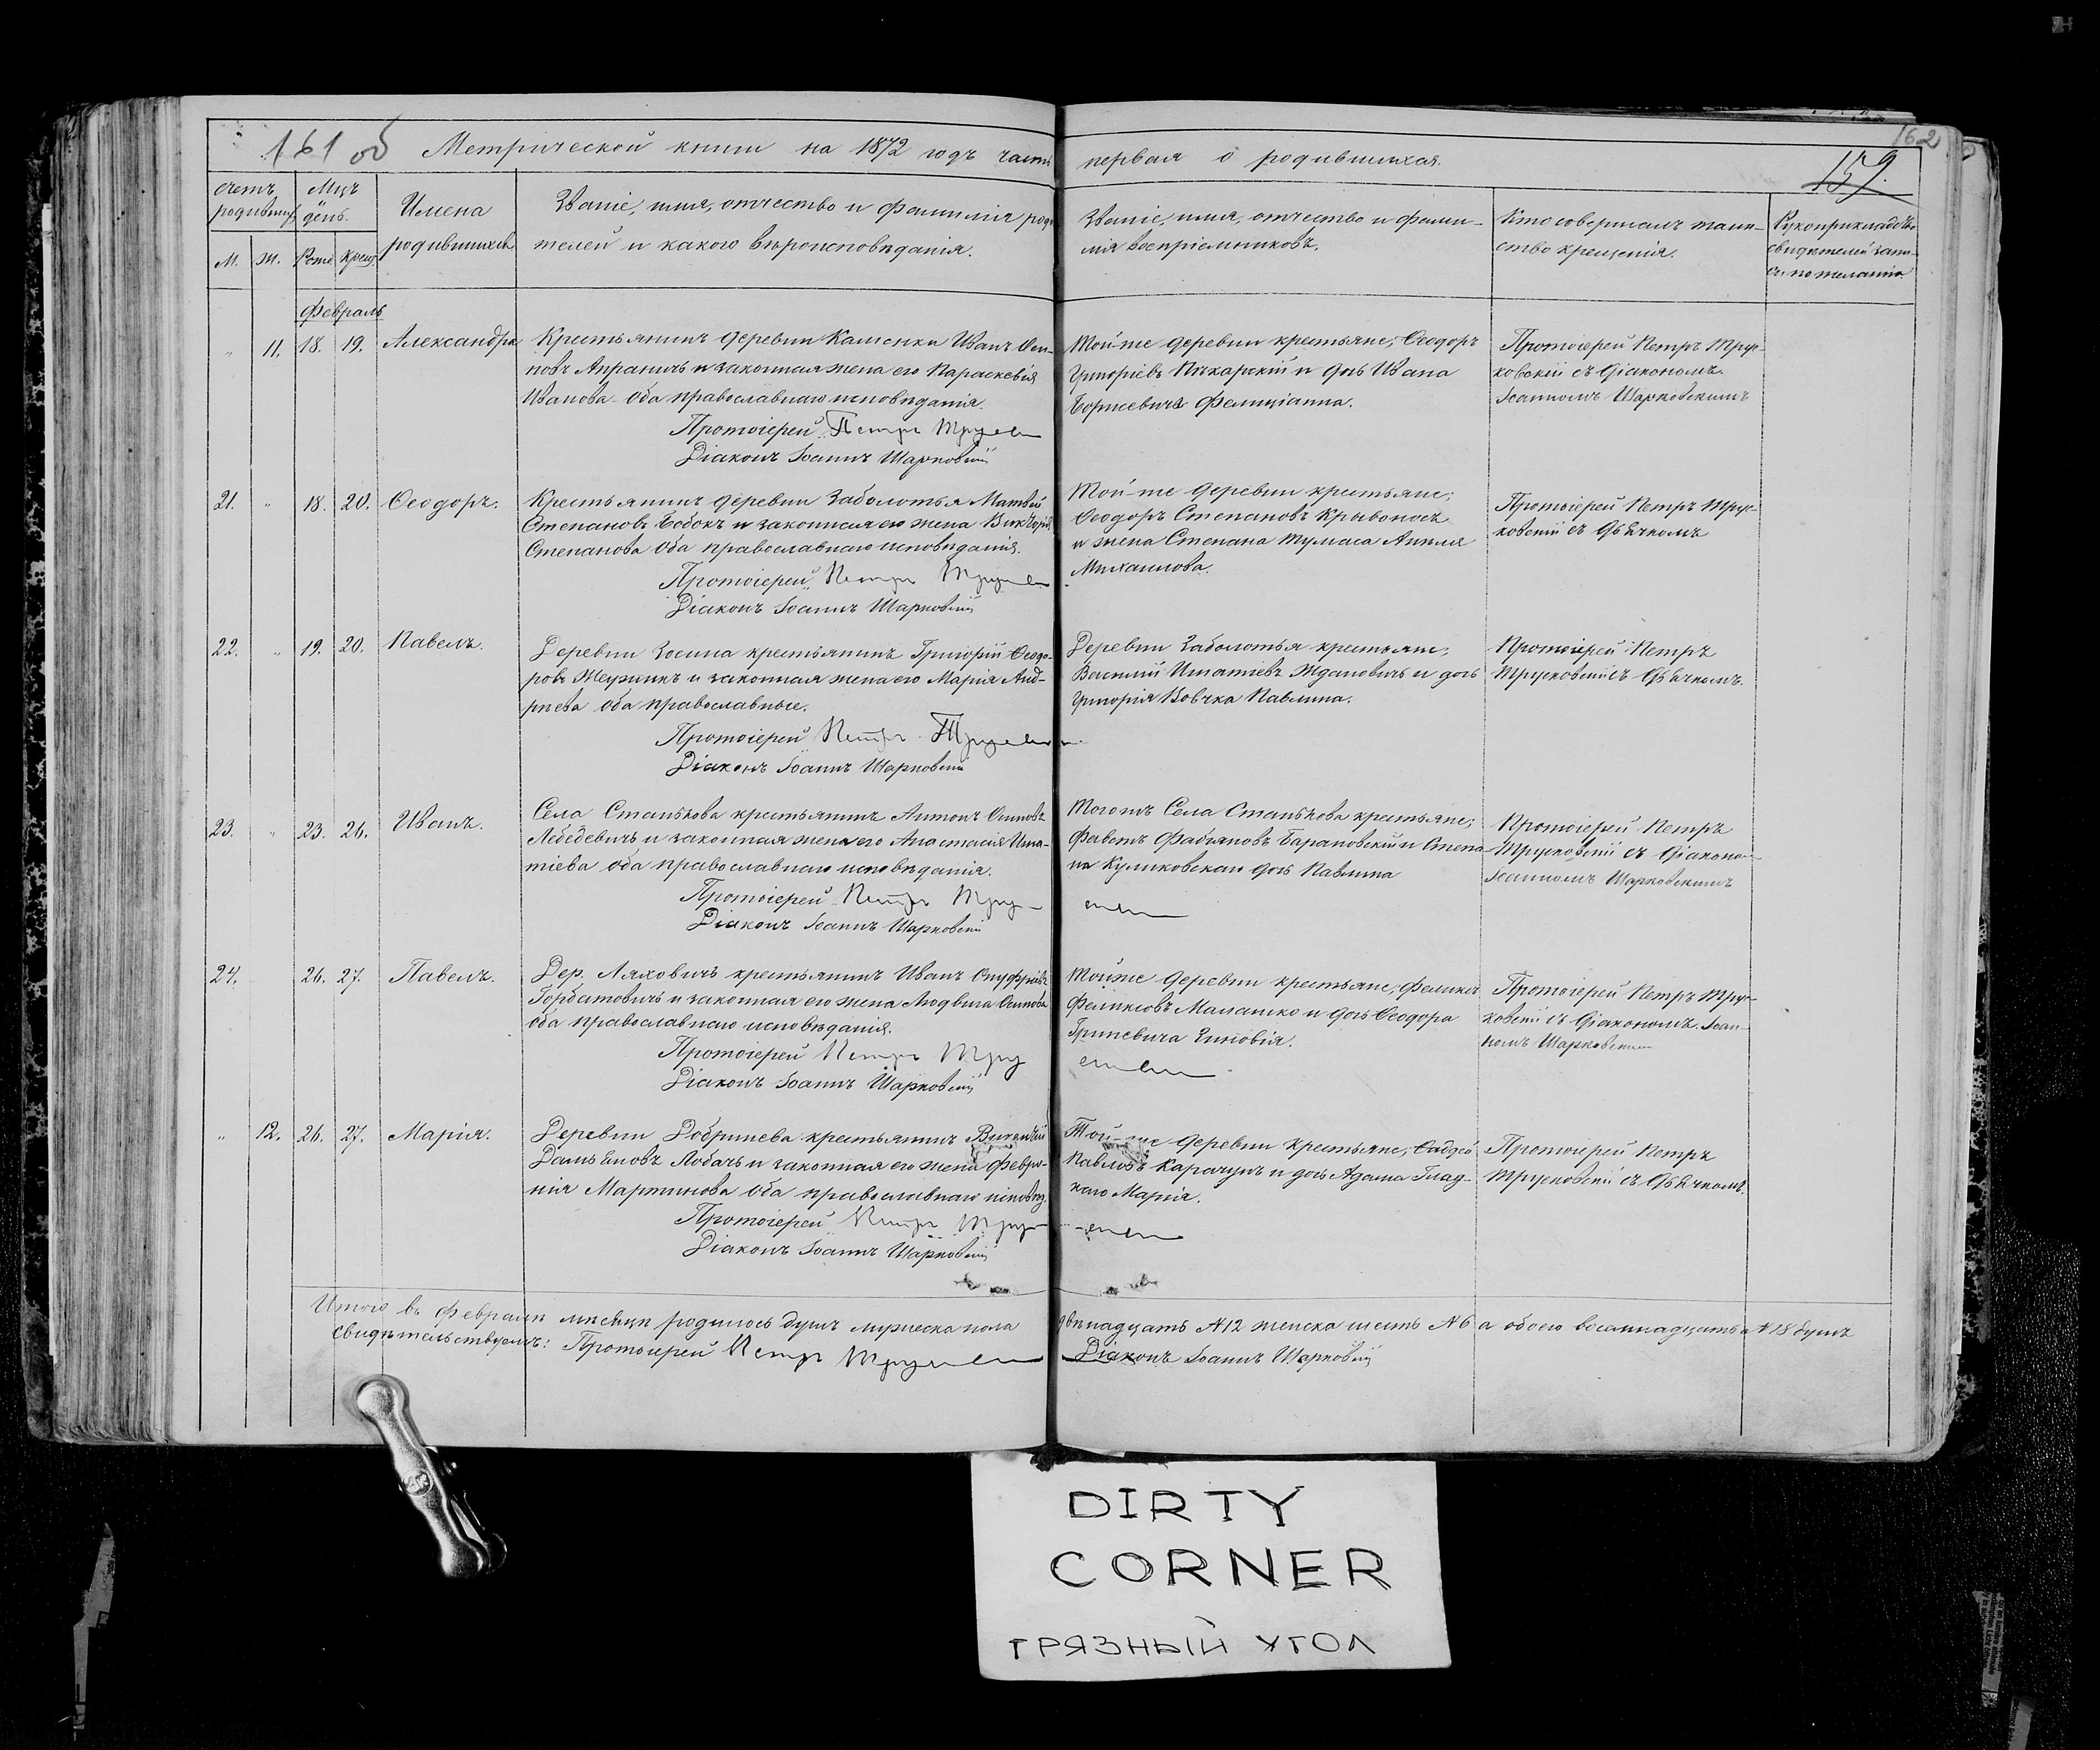 161 об Метрической книги на 1872 годъ часть первая о родившихся.
162
159.
счетъ родившихъ
Мцъ и день.
Имена родившихся
Званіе, имя, отчество и фамилія роди-
телей и какого вѣроисповѣданія.
Званіе, имя, отчество и фами-
лія воспріемниковъ.
Кто совершалъ таин-
ство крещенія.
Рукоприкладство
свидѣтелей запи-
си по желанію
М. Ж. Рожд. Крещ.
Февраль
" 11. 18. 19. Александра
Крестьянинъ деревни Каменки Иванъ Оси-
повъ Апраничъ и законная жена его Параскевія
Иванова оба православнаго исповѣданія.
Протоіерей Петръ
Діаконъ Іоаннъ Шарковскій
Той-же деревни крестьяне; Ѳеодоръ
Григоріевъ Пѣкарскій и дочь Ивана
Борисевича Фелиціанна.
Протоіерей Петръ Трус-
ковскій съ діакономъ
Іоанномъ Шарковскимъ
21. " 18. 20. Ѳеодоръ.
Крестьянинъ деревни Заболотья Матвей
Степановъ Бобокъ и законная его жена Викторія
Степанова оба православнаго исповѣданія.
Протоіерей Петръ
Діаконъ Іоаннъ Шарковскій
Той-же деревни крестьяне;
Ѳеодоръ Степановъ Крывоносъ
и жена Степана Тумаса Анеля
Михаилова.
Протоіерей Петръ Трус-
ковскій съ дьячкомъ
22. " 19. 20. Павелъ.
Деревни Зосина крестьянинъ Григорій Ѳеодо-
ровъ и законная жена его Марія Анд-
реева оба православные.
Протоіерей Петръ
Діаконъ Іоаннъ Шарковскій
Деревни Заболотья крестьяне;
Василий Игнатіевъ Ждановичъ и дочь
Григорія Вовчка Павлина.
Протоіерей Петръ
Трусковскій съ дьячкомъ.
23. " 23. 26. Иванъ.
Села Станькова крестьянинъ Антонъ Осиповъ
Лебедевичъ и законная жена его Анастасія Игна-
тіева оба православнаго исповѣданія.
Протоіерей Петръ
Діаконъ Іоаннъ Шарковскій
Тогожъ Села Станькова крестьяне;
Фабіановъ Барановскій и Степа-
на Куликовскаго дочь Павлина
Протоіерей Петръ
Трусковскій съ діакономъ
Іоанномъ Шарковскимъ
24. 26. 27. Павелъ.
Дер. Ляховичъ крестьянинъ Иванъ Онуфріевъ
Горбатовичъ и законная его жена Людвига Осипова
оба православнаго исповѣданія.
Протоіерей Петръ
Діаконъ Іоаннъ Шарковскій
Той-же деревни крестьяне; Феликсъ
Феликсовъ Малашко и дочь Ѳеодора
Гриневича Зиновія.
Протоіерей Петръ Трус-
ковскій съ діакономъ Іоан-
номъ Шарковскимъ
" 12. 26. 27. Марія.
Деревни Добринева крестьянинъ Викентій
Дамьяновъ Лобачъ и законная его жена Февро-
нія Мартинова оба православнаго исповѣд.
Протоіерей Петръ
Діаконъ Іоаннъ Шарковскій
Той-же деревни крестьяне; Ѳадѳей
Павловъ Карачунъ и дочь Адама Глад-
каго Марія.
Протоіерей Петръ
Трусковскій съ дьячкомъ.
Итого въ Февралѣ мѣсяцѣ родилось душъ мужеска пола двѣнадцать №12 женска шесть №6 а обоего восемнадцать №18 душъ
Свидѣтельствуемъ: Протоіерей Петръ Діаконъ Іоаннъ Шарковскій
DIRTY
CORNER
ГРЯЗНЫЙ УГОЛ